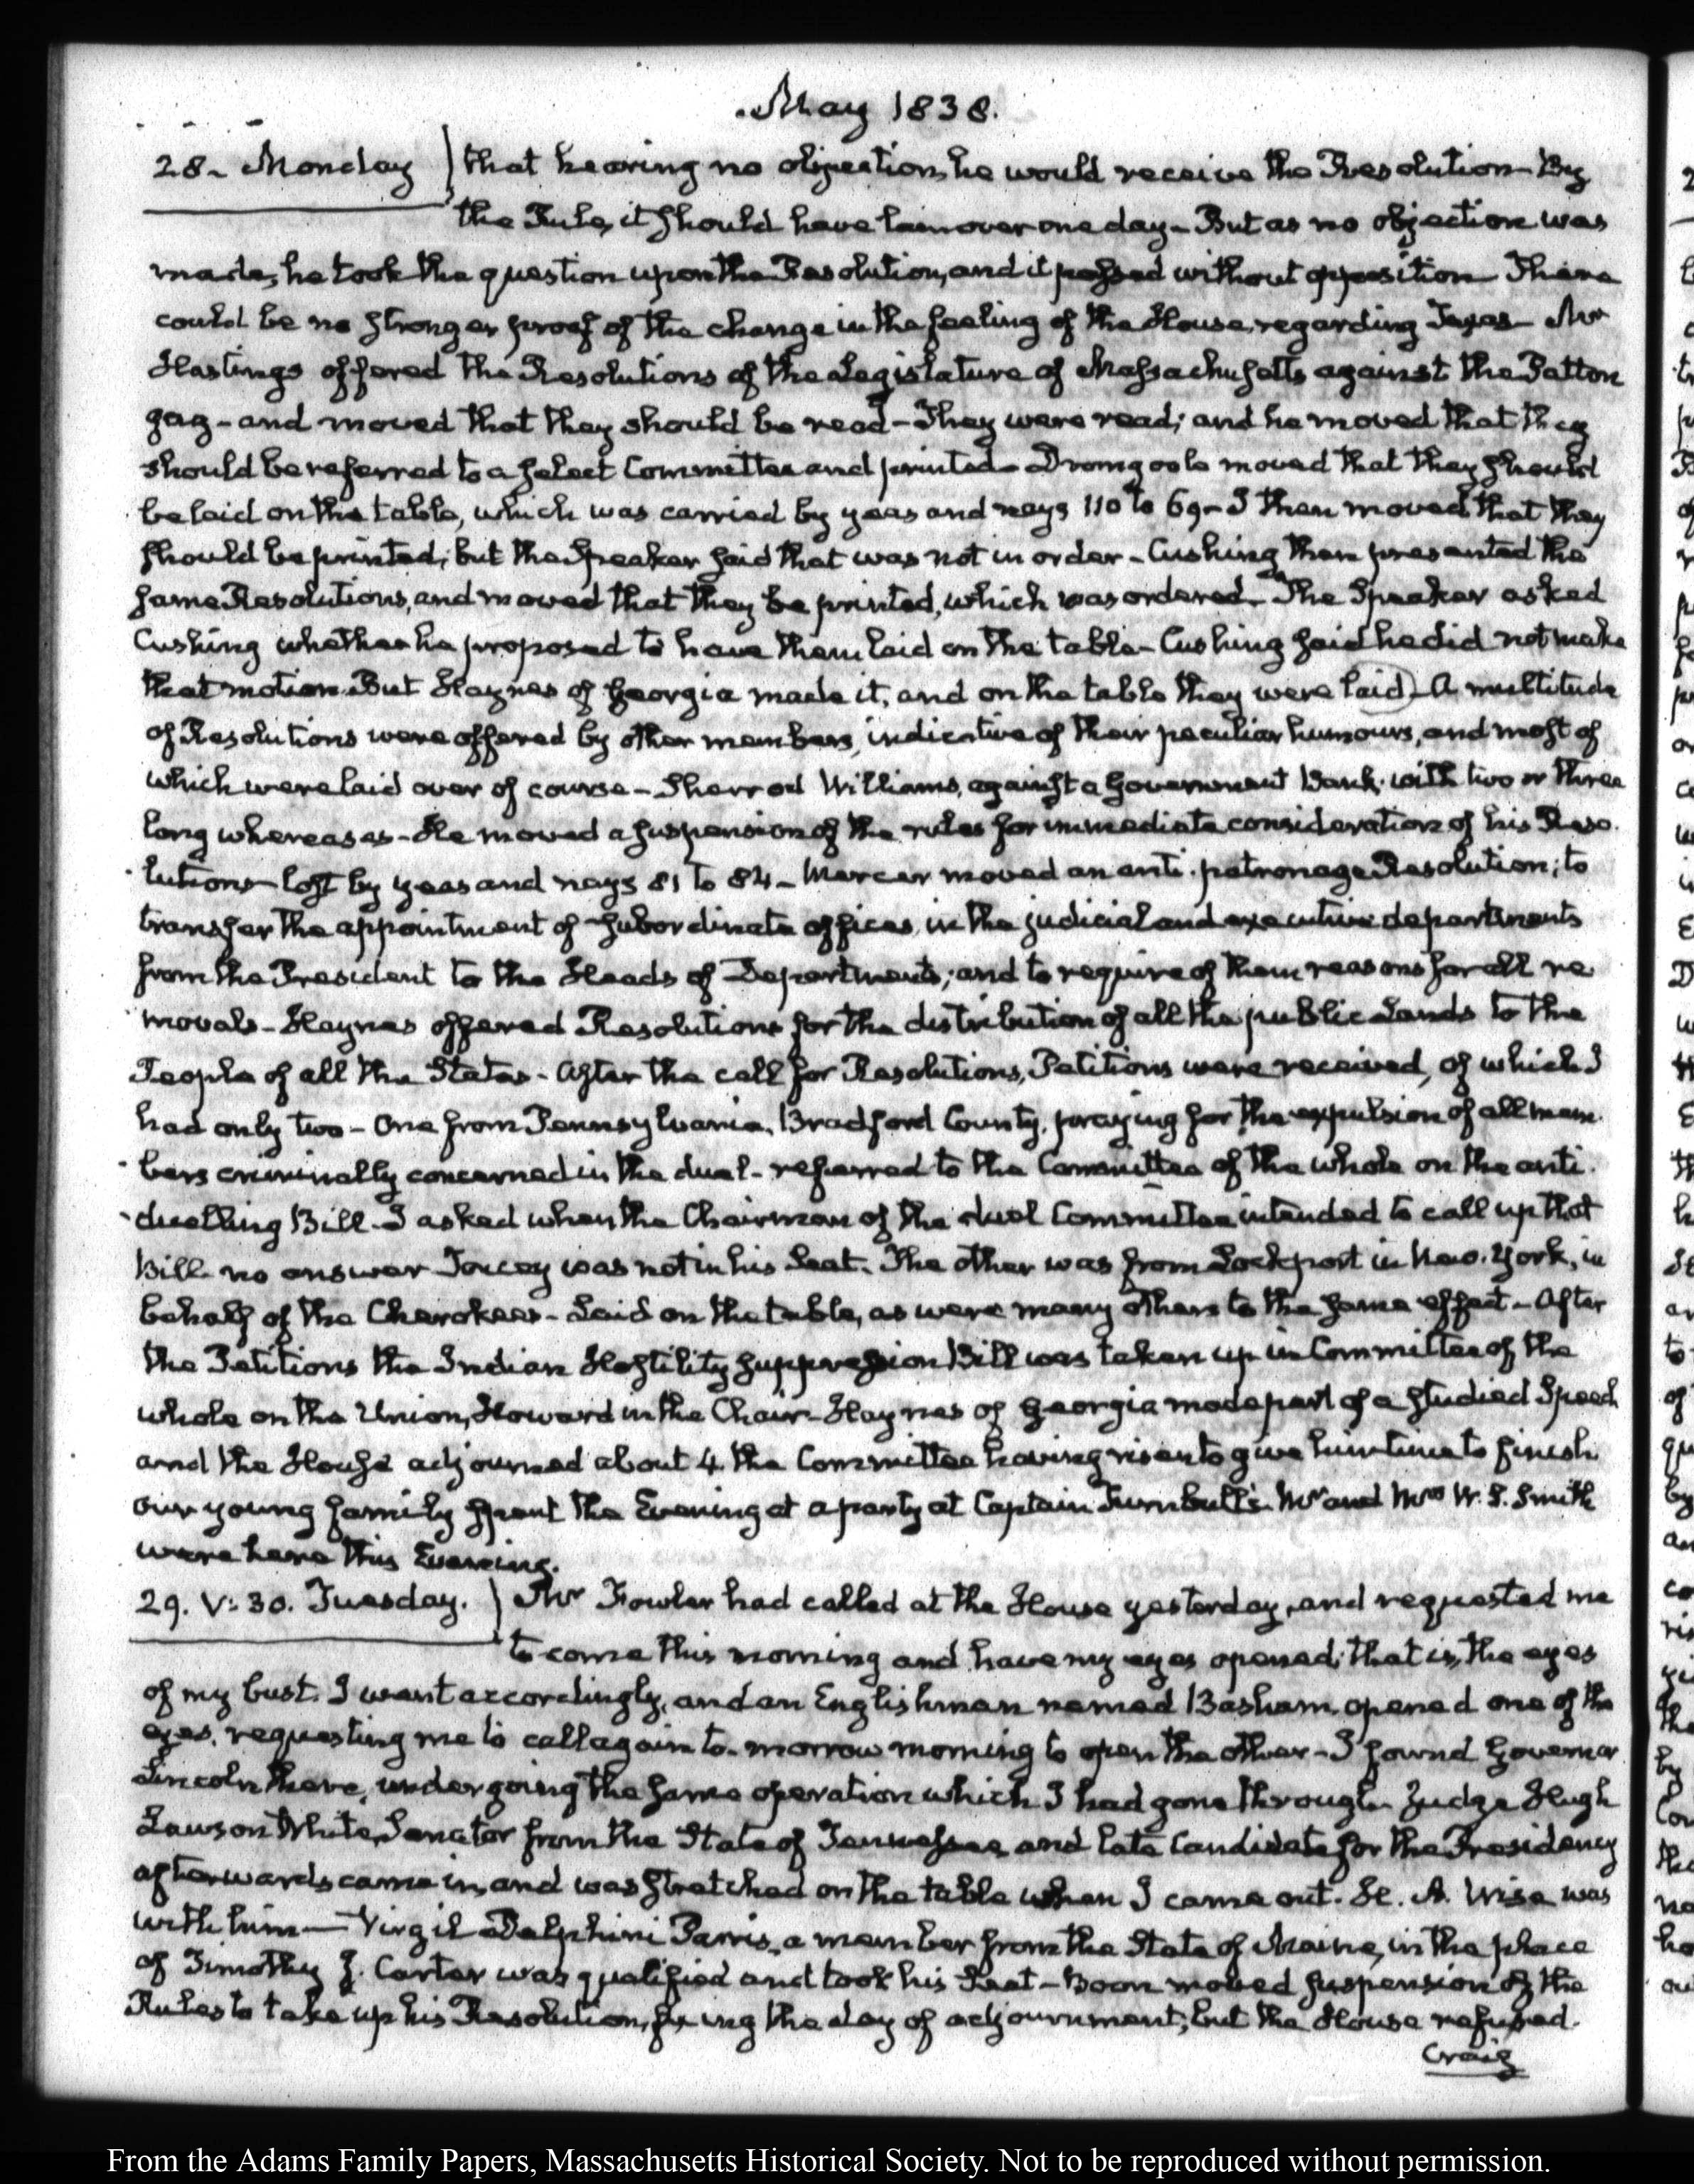 May 1838.
28. Monday) that hearing no objection, he would receive the Resolution—By
the Rule, it should have lain over one day—But as no objection was
made, he took the question upon the Resolution, and it passed without opposition There
could be no stronger proof of the change in the feeling of the House, regarding Texas—Mr
Hastings offered the Resolutions of the Legislature of Massachusetts against the Patton
gag—and moved that they should be read—They were read; and he moved that they
should be referred to a select Committee and printed—Dromgoole moved that they should
be laid on the table, which was carried by yeas and nays 110 to 69—I then moved that they
should be printed; but the Speaker said that was not in order—Cushing then presented the
same Resolutions, and moved that they be printed, which was ordered. The Speaker asked
Cushing whether he proposed to have them laid on the table—Cushing said he did not make
that motion. But Haynes of Georgia made it, and on the table they were laid—A multitude
of Resolutions were offered by other members, indicative of their peculiar humours, and most of
which were laid over of course—Sherrod Williams, against a Government Bank. with two or three
long whereases—He moved a suspension of the rules for immediate consideration of his Reso-
lutions—lost by yeas and nays 81 to 84—Mercer moved an anti-patronage Resolution; to
transfer the appointment of subordinate offices in the judicial and executive departments
from the President to the Heads of Departments; and to require of them reasons for all re-
movals—Haynes offered Resolutions for the distribution of all the public Lands to the
People of all the States—After the call for Resolutions, Petitions were received, of which I
had only two—One from Pennsylvania, Bradford County, praying for the expulsion of all mem-
bers criminally concerned in the duel—referred to the Committee of the whole on the anti-
duelling Bill—I asked when the Chairman of the duel Committee intended to call up that
Bill—no answer Toucey was not in his Seat. The other was from Lockport in New-York, in
behalf of the Cherokees—Laid on the table, as were many others to the same effect—After
the Petitions the Indian Hostility suppression Bill was taken up in Committee of the
whole on the Union, Howard in the Chair—Haynes of Georgia made part of a studied Speech
and the House adjourned about 4. the Committee having risen to give him time to finish
our young family spent the Evening at a party at Captain Turnbull's. Mr and Mrs W. S. Smith
were here this Evening.
29. V:30. Tuesday.) Mr Fowler had called at the House yesterday, and requested me
to come this morning and have my eyes opened; that is, the eyes
of my bust. I went accordingly, and an Englishman named Basham, opened one of the
eyes, requesting me to call again to-morrow morning to open the other—I found Governor
Lincoln there, undergoing the same operation which I had gone through—Judge Hugh
Lawson White, Senator from the State of Tennessee, and late Candidate for the Presidency
afterwards came in, and was stretched on the table when I came out. H. A. Wise was
with him—Virgil Delphini Parris, a member from the State of Maine, in the place
of Timothy J. Carter was qualified and took his Seat—Boon moved suspension of the
Rules to take up his Resolution, fixing the day of adjournment; but the House refused.
Craig
From the Adams Family Papers, Massachusetts Historical Society. Not to be reproduced without permission.